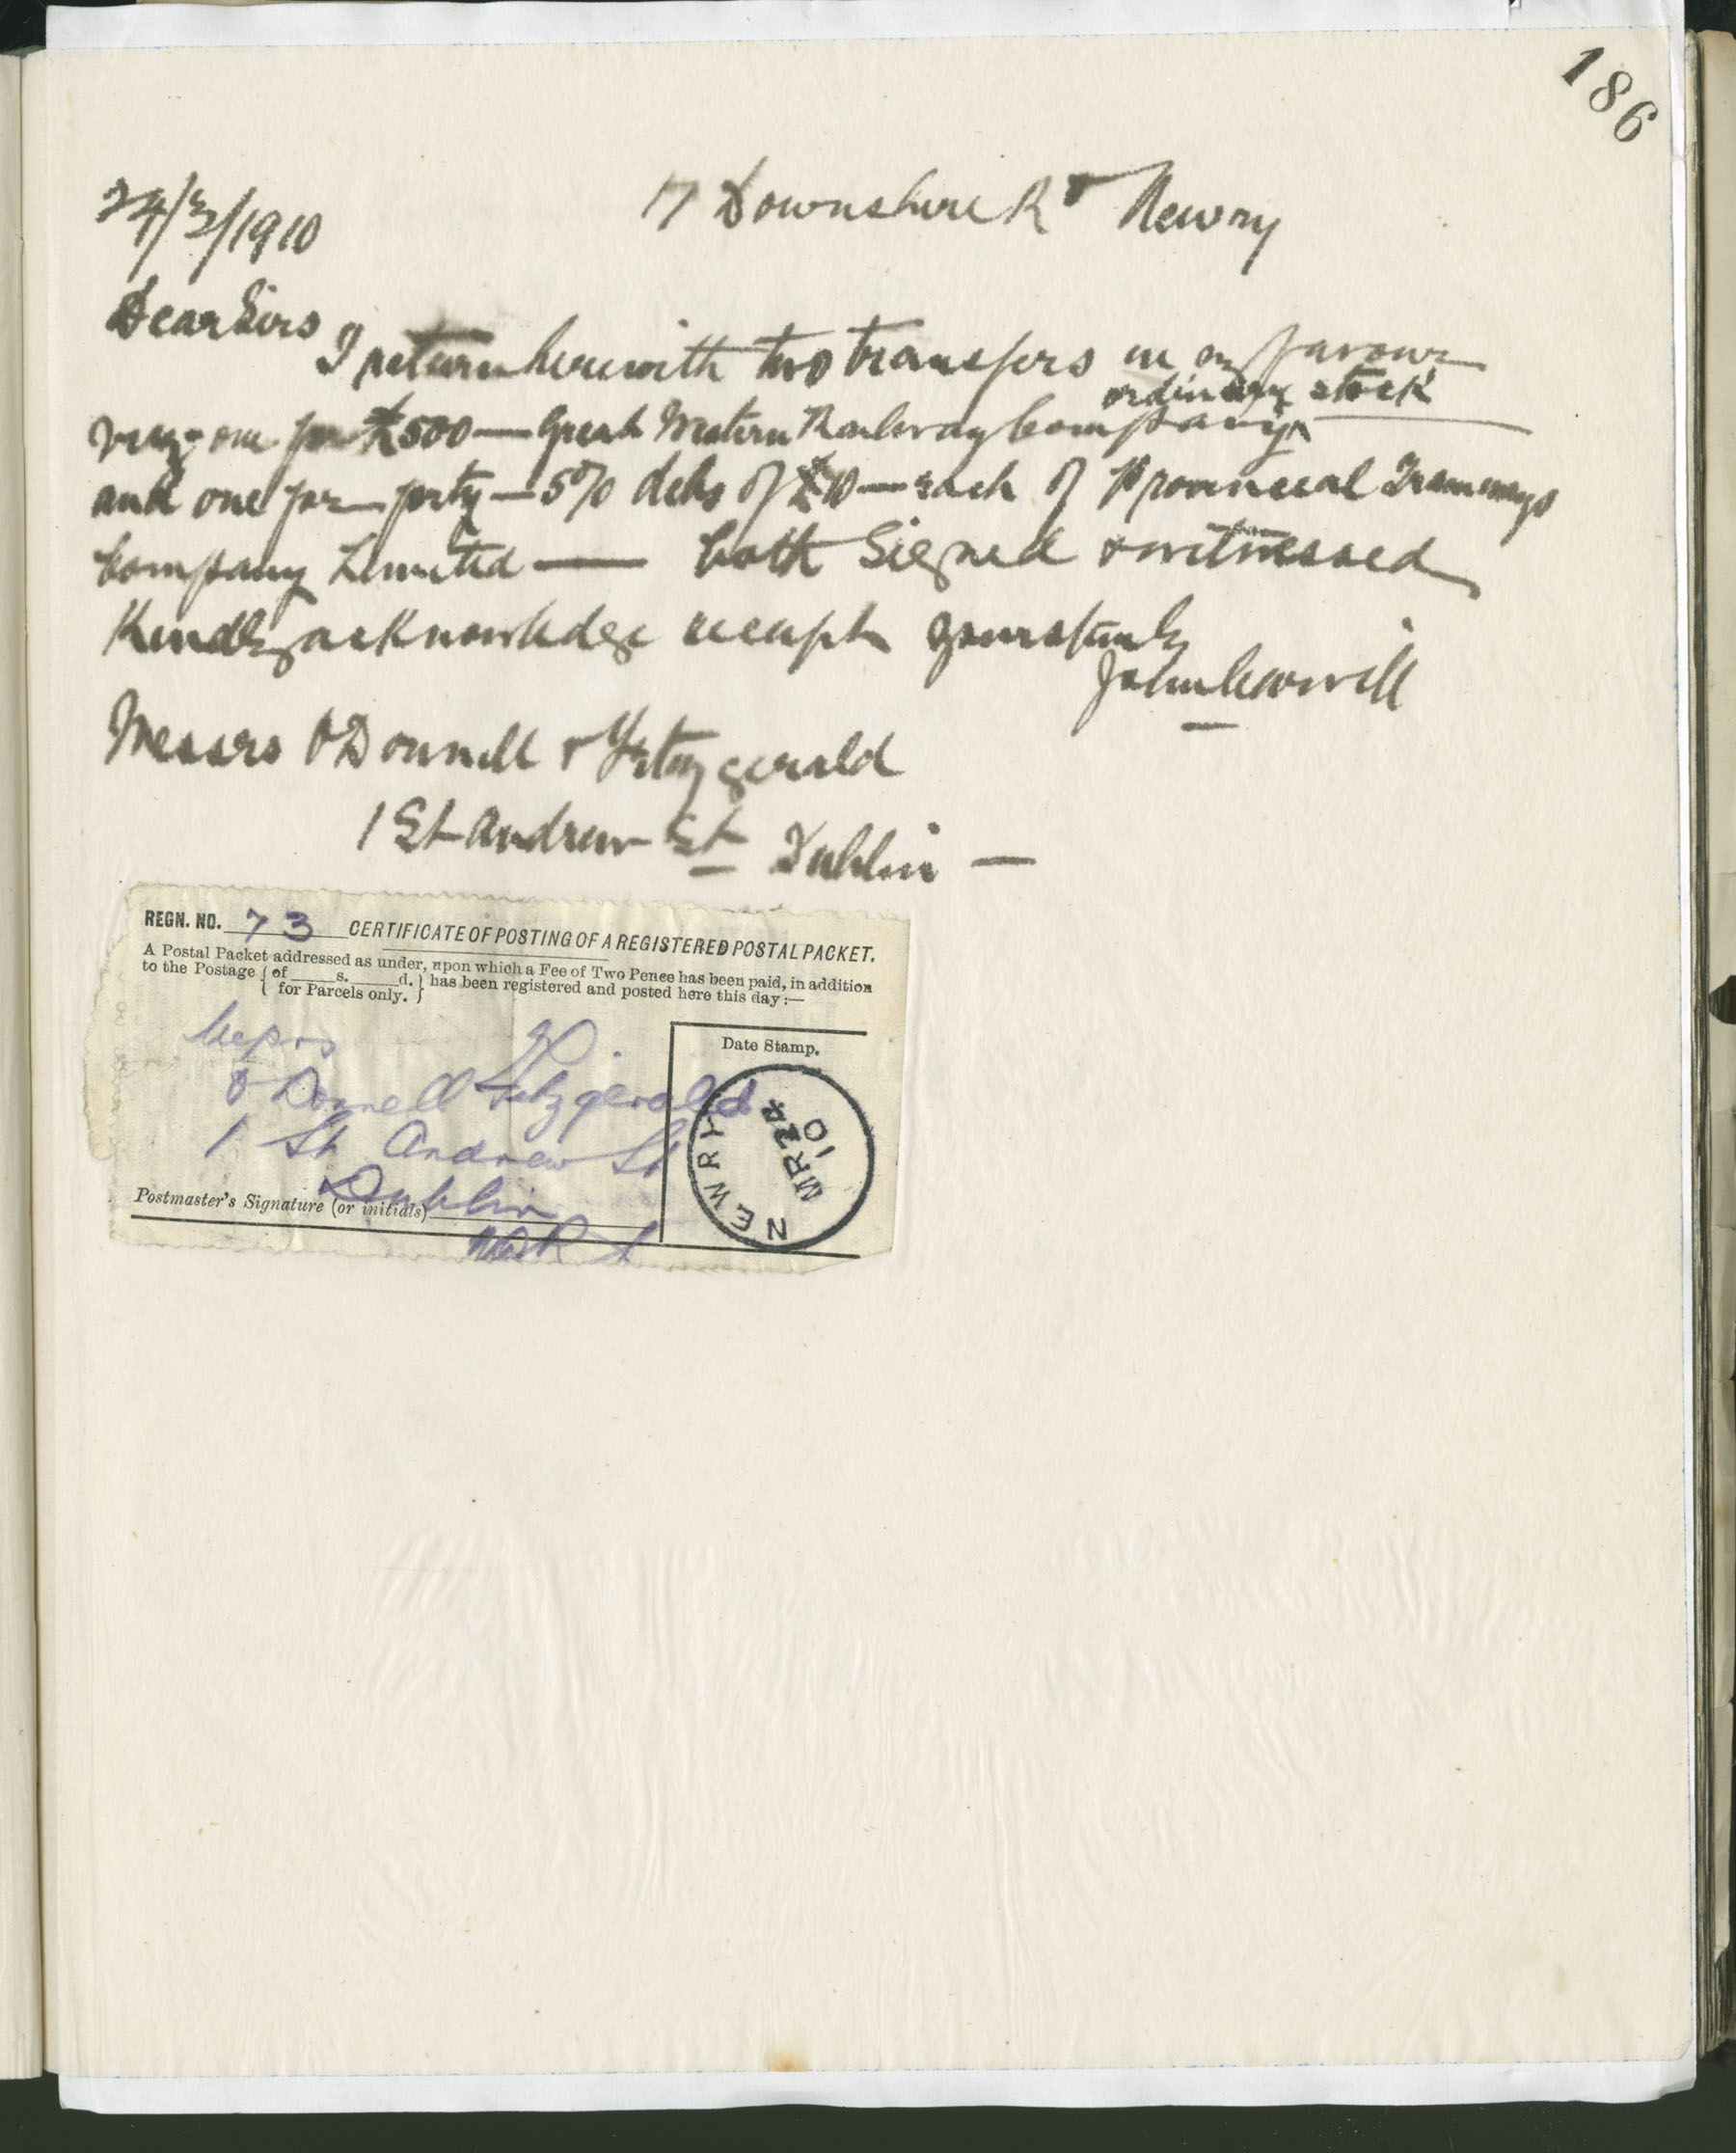 186
24/3/1910
17 Downshire Rd Newry
Dear Sirs
I return herewith two transfers in my favour
ordinary stock
vizt one for £500 — Great Western Railway Company ^
and one for forty — 5% debs of £10 — each of Provincial Tramways
Company Limited — both signed & witnessed
Kindly acknowledge receipt yours truly
John
Messrs O'Donnell & Fitzgerald
1 St Andrew St Dublin —
REGN. NO. 73 CERTIFICATE OF POSTING OF A REGISTERED POSTAL PACKET.
A Postal Packet addressed as under, upon which a Fee of Two Pence has been paid, in addition
to the Postage { of ____s. ____d. } has been registered and posted here this day:—
for Parcels only.
Date Stamp.
Messrs
O'Donnell Fitzgerald
1 St Andrew St
Dublin
NEWRY
MR 24
10
Postmaster's Signature (or initials)